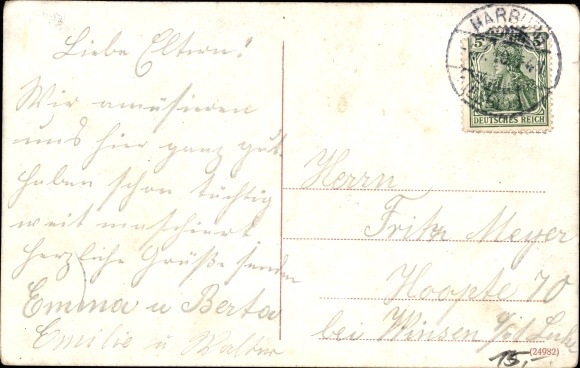 Liebe Eltern!
Wir amüsieren
uns hier ganz gut.
haben schon tüchtig
weit marschiert
herzliche Grüße senden
Emma u Berta
Emilie u Walter
HARBURG
5
DEUTSCHES REICH
Herrn
Fritz Meyer
Hoopte 70
bei Winsen a/d Luhe
15,-
(24982)